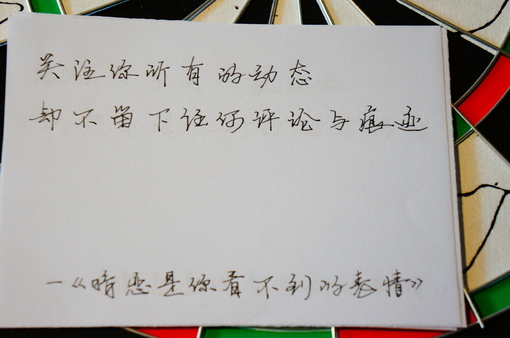 关注你所有的动态
却不留下任何评论与痕迹
—《暗恋是你看不到的表情》